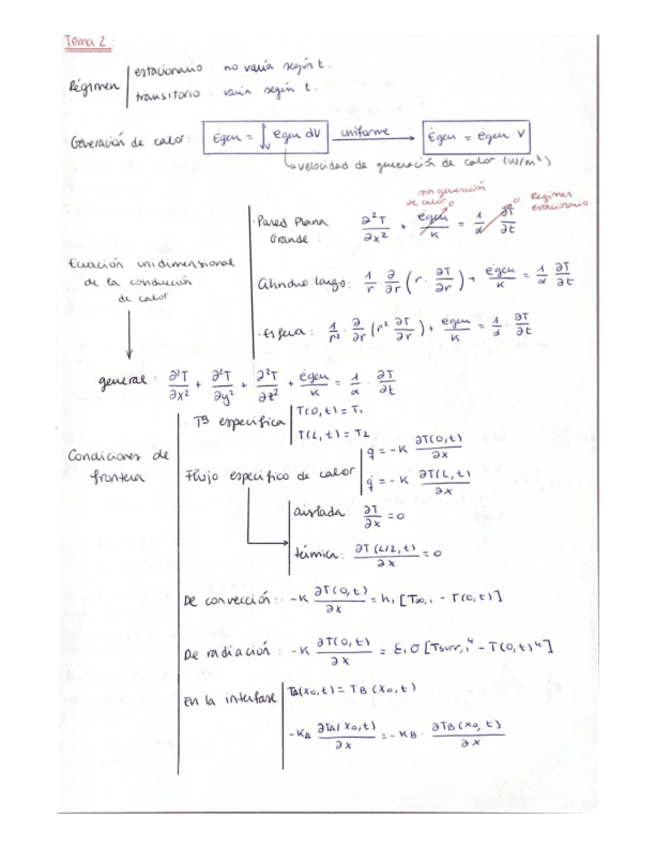 Tema 2:
Régimen | estacionario no varía según t.
transitorio: varía según t.
Generación de calor: Ėgen = ∫v ėgen dV uniforme → Ėgen = ėgen · V
velocidad de generación de calor (W/m³)
sin generación de calor 0
Regimen estacionario 0
· Pared Plana Grande: ∂²T/∂x² + ėgen/K = 1/α · ∂T/∂t
Ecuación unidimensional de la conducción de calor
Cilindro largo: 1/r · ∂/∂r (r · ∂T/∂r) + ėgen/K = 1/α ∂T/∂t
· Esfera: 1/r² · ∂/∂r (r² ∂T/∂r) + ėgen/K = 1/α · ∂T/∂t
general: ∂²T/∂x² + ∂²T/∂y² + ∂²T/∂z² + ėgen/K = 1/α · ∂T/∂t
Condiciones de frontera
· Tª especifica | T(0,t) = T₁
T(L,t) = T₂
Flujo especifico de calor | q̇ = -K ∂T(0,t)/∂x
q̇ = -K ∂T(L,t)/∂x
aislada: ∂T/∂x = 0
térmica: ∂T(L/2,t)/∂x = 0
De convección: -K ∂T(0,t)/∂x = h₁ [T∞,₁ - T(0,t)]
De radiación: -K ∂T(0,t)/∂x = ε₁σ [Tsurr,₁⁴ - T(0,t)⁴]
En la interfase | TA(x₀,t) = TB(x₀,t)
-KA ∂TA(x₀,t)/∂x = -KB · ∂TB(x₀,t)/∂x